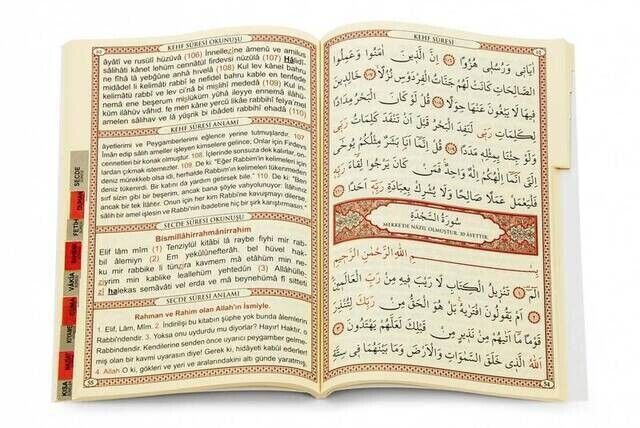 KEHF SÛRESİ OKUNUŞU
âyâtî ve rusulî hüzüvâ (106) İnnellezîne âmenû ve amilus
sâlihâti kânet lehüm cennâtül firdevsi nüzülâ (107) Hâlidî-
sâlihati kânet lehüm
fîhâ lâ yebğûne anhâ hıvelâ (108) Kul lev kânel bahru
midâdel li kelimâti rabbî le nefidel bahru kable en tenfede
kelimâtü rabbî ve lev ci'nâ bi mislihî mededâ (109) Kul in-
nemâ ene beşerum mislüküm yûhâ ileyye ennemâ ilâhü-
küm ilâhüv vâhid, fe men kâne yercû likâe rabbihî felya'mel
amelen sâlihav ve lâ yüşrik bi ibâdeti rabbihî ehadâ (110)
KEHF SÛRESİ ANLAMI
âyetlerimi ve Peygamberlerimi eğlence yerine tutmuşlardır. 107
İman edip sâlih ameller işleyen kimselere gelince; Onlar için Firdevs
cennetleri bir konak olmuştur. 108. İçlerinde sonsuza dek kalırlar, on-
lardan çıkmak istemezler. 109. De ki: "Eğer Rabb'imin kelimeleri için
deniz mürekkeb olsa idi, herhalde Rabb'imin kelimeleri tükenmeden
deniz tükenirdi. Bir katını da yardım getirsek bile." 110. De ki: "Ben
sırf sizin gibi bir beşerim, ancak bana şöyle vahyolunuyor: İlâhınız
ancak bir tek İlâhtır. Onun için her kim Rabb'ine kavuşmayı dilerse,
sâlih bir amel işlesin ve Rabb'inin ibadetine hiç bir şirk karıştırmasın."
SECDE SÛRESİ OKUNUŞU
Bismillâhirrahmânirrahîm
Elif lâm mîm (1) Tenzîylül kitâbi lâ raybe fîyhi mir rab-
bil âlemîyn (2) Em yekûlûnefterâh, bel hüvel hak-
ku mir rabbike li tünzira kavmem mâ etâhüm min ne-
zîyrim min kablike leallehüm yehtedûn (3) Allâhülle-
zî halekas semâvâti vel erda ve mâ beynehümâ fî sitteti
SECDE SÛRESİ ANLAMI
Rahman ve Rahim olan Allah'ın İsmiyle.
1. Elif, Lâm, Mîm. 2. İndirilişi bu kitabın şüphe yok bunda âlemlerin
Rabb'indendir. 3. Yoksa onu uydurdu mu diyorlar? Hayır! Haktır, o
Rabb'indendir. Kendilerine senden önce uyarıcı peygamber gelme-
miş olan bir kavmi uyarasın diye! Gerek ki, hidâyeti kabul ederler!
4. Allah O ki, gökleri ve yeri ve aralarındakini altı günde yaratmış,
SECDE
DUHAN
FETİH
VÂKIA
KIYAME
KISA
KEHF SÛRESİ
اٰيَاتٖي وَرُسُلٖي هُزُوًا ﴿١٠٦﴾ اِنَّ الَّذٖينَ اٰمَنُوا وَعَمِلُوا
الصَّالِحَاتِ كَانَتْ لَهُمْ جَنَّاتُ الْفِرْدَوْسِ نُزُلًا ﴿١٠٧﴾ خَالِدٖينَ
فٖيهَا لَا يَبْغُونَ عَنْهَا حِوَلًا ﴿١٠٨﴾ قُلْ لَوْ كَانَ الْبَحْرُ مِدَادًا
لِكَلِمَاتِ رَبّٖي لَنَفِدَ الْبَحْرُ قَبْلَ اَنْ تَنْفَدَ كَلِمَاتُ رَبّٖي
وَلَوْ جِئْنَا بِمِثْلِهٖ مَدَدًا ﴿١٠٩﴾ قُلْ اِنَّمَا اَنَا بَشَرٌ مِثْلُكُمْ يُوحٰى
اِلَيَّ اَنَّمَا اِلٰهُكُمْ اِلٰهٌ وَاحِدٌ فَمَنْ كَانَ يَرْجُوا لِقَاءَ
رَبِّهٖ فَلْيَعْمَلْ عَمَلًا صَالِحًا وَلَا يُشْرِكْ بِعِبَادَةِ رَبِّهٖ اَحَدًا ﴿١١٠﴾
سُورَةُ السَّجْدَةِ
MEKKE'DE NÂZİL OLMUŞTUR. 30 ÂYETTİR.
بِسْمِ اللّٰهِ الرَّحْمٰنِ الرَّحٖيمِ
الٓمٓ ﴿١﴾ تَنْزٖيلُ الْكِتَابِ لَا رَيْبَ فٖيهِ مِنْ رَبِّ الْعَالَمٖينَ ﴿٢﴾
اَمْ يَقُولُونَ افْتَرٰيهُ بَلْ هُوَ الْحَقُّ مِنْ رَبِّكَ لِتُنْذِرَ
قَوْمًا مَا اَتٰيهُمْ مِنْ نَذٖيرٍ مِنْ قَبْلِكَ لَعَلَّهُمْ يَهْتَدُونَ ﴿٣﴾
اَللّٰهُ الَّذٖي خَلَقَ السَّمٰوَاتِ وَالْاَرْضَ وَمَا بَيْنَهُمَا فٖي سِتَّةِ